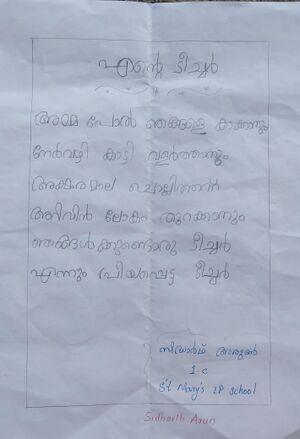 എന്റെ ടീച്ചർ
അമ്മ പോൽ ഞങ്ങളെ കാക്കാനും
നേർവഴി കാട്ടി വളർത്താനും
അക്ഷരമാല ചൊല്ലിത്തന്ന്
അറിവിൻ ലോകം തുറക്കാനും
ഞങ്ങൾക്കുണ്ടൊരു ടീച്ചർ
എന്നും പ്രിയപ്പെട്ട ടീച്ചർ
സിദ്ധാർഥ് അരുൺ
1-C
St Mary's LP School
Sidharth Arun